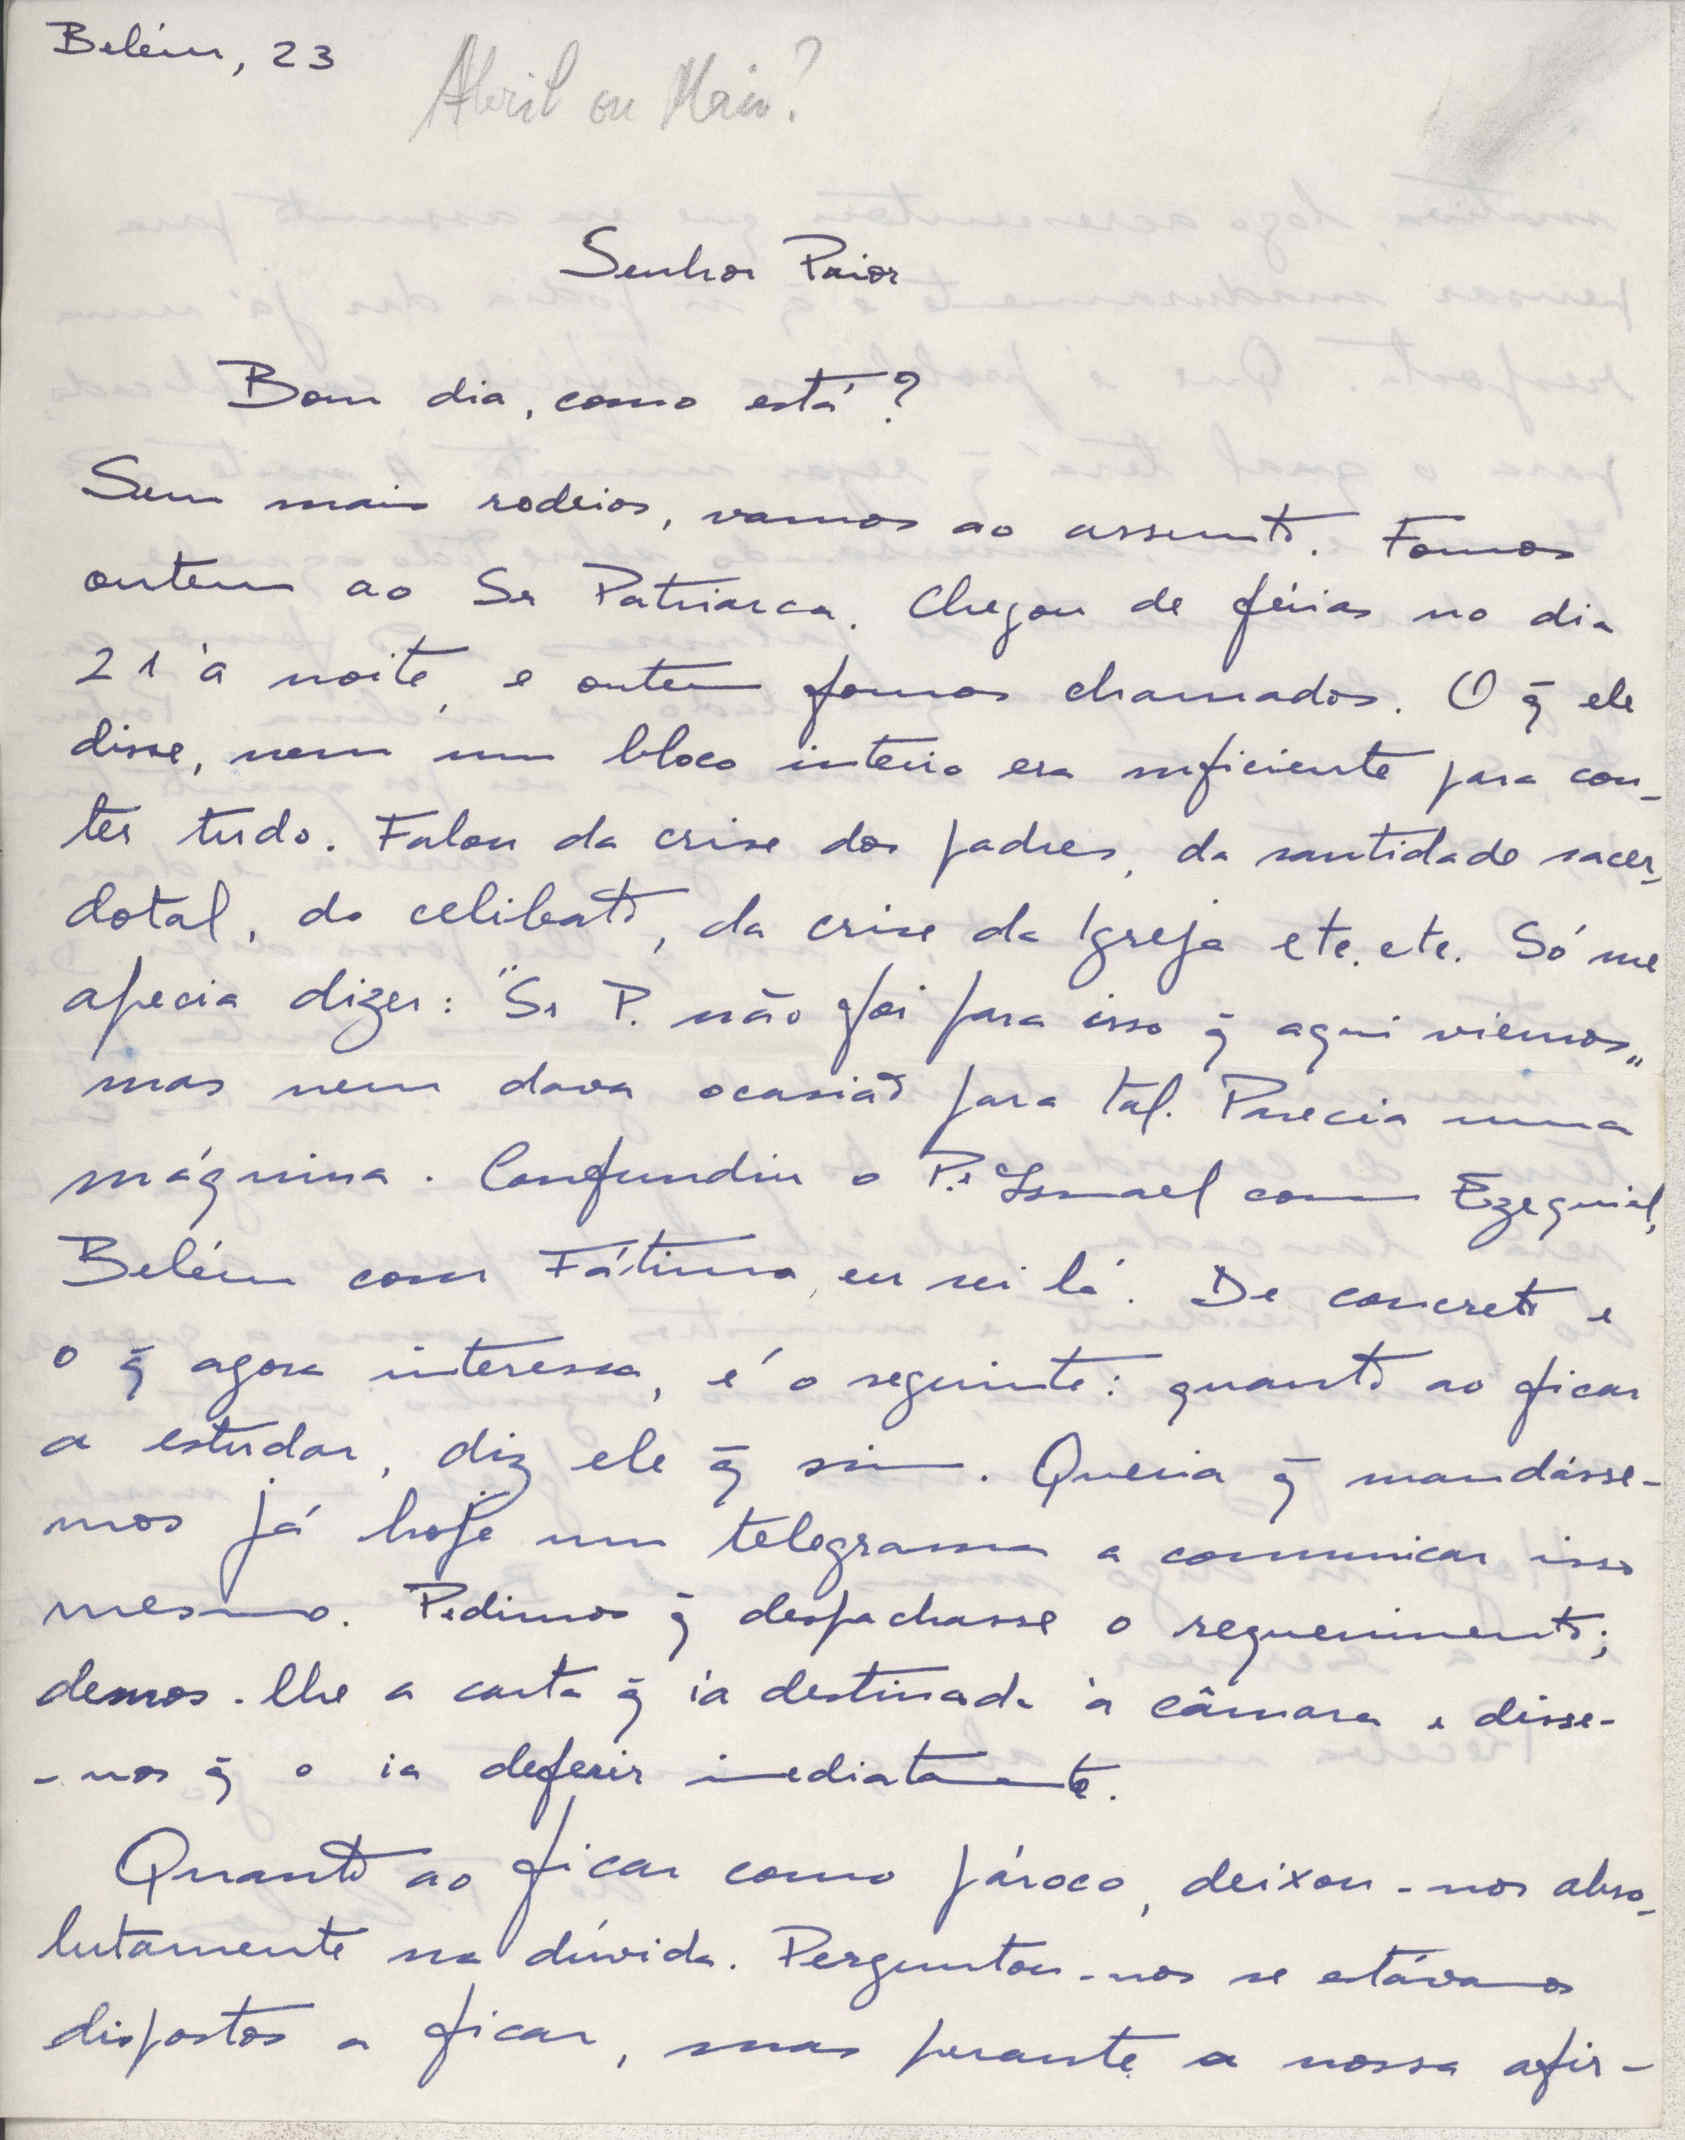 Belém, 23
Abril ou Maio?
Senhor Prior
Bom dia, como está?
Sem mais rodeios, vamos ao assunto. Fomos
ontem ao Sr Patriarca. Chegou de férias no dia
21 à noite, e ontem fomos chamados. O q̃ ele
disse, nem um bloco inteiro era suficiente para con-
ter tudo. Falou da crise dos padres, da santidade sacer-
dotal, do celibato, da crise da Igreja etc. etc. Só me
apecia dizer: "Sr P. não foi para isso q̃ aqui viemos"
mas nem dava ocasião para tal. Parecia uma
máquina. Confundiu o P.e Ismael com Ezequiel,
Belém com Fátima, eu sei lá. De concreto e
o q̃ agora interessa, é o seguinte: quanto ao ficar
a estudar, diz ele q̃ sim. Queria q̃ mandásse-
mos já hoje um telegrama a comunicar isso
mesmo. Pedimos q̃ despachasse o requerimento;
demos-lhe a carta q̃ ia destinada à câmara e disse-
-nos q̃ o ia deferir imediatamente.
Quanto ao ficar como pároco, deixou-nos abso-
lutamente na dúvida. Perguntou-nos se estávamos
dispostos a ficar, mas perante a nossa afir-